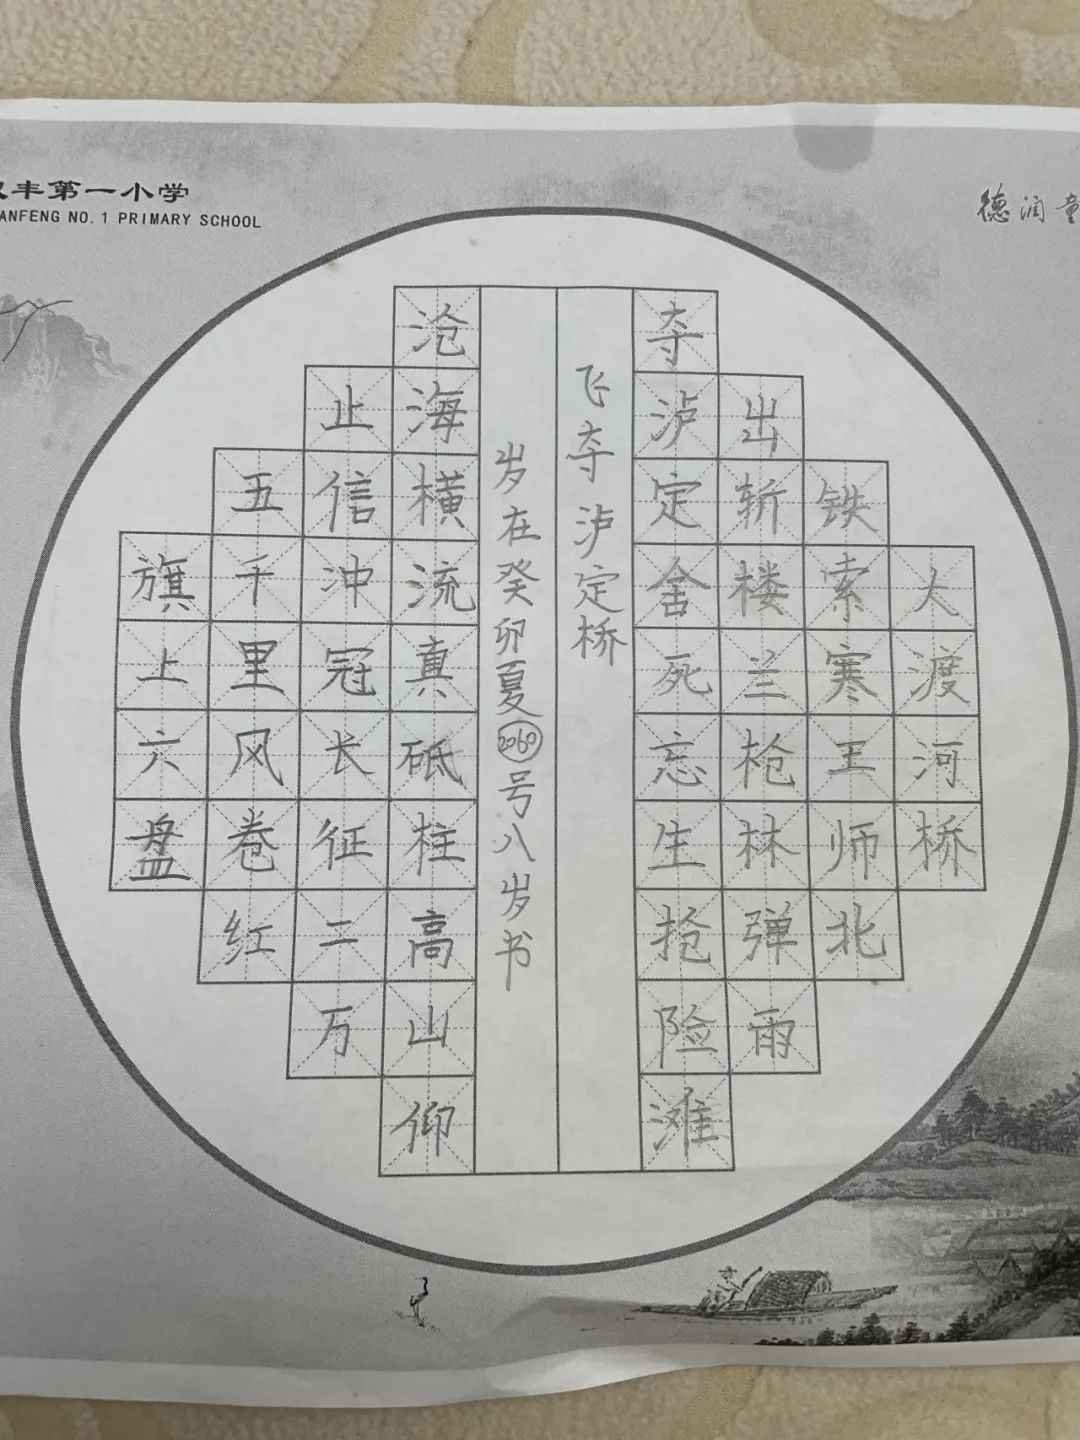 丰第一小学
ANFENG NO.1 PRIMARY SCHOOL
德润童
大渡河桥
铁索寒王师北
出斩楼兰枪林弹雨
夺泸定舍死忘生抢险滩
飞夺泸定桥
岁在癸卯夏2060号八岁书
沧海横流真砥柱高山仰
止信冲冠长征二万
五千里风卷红
旗上六盘